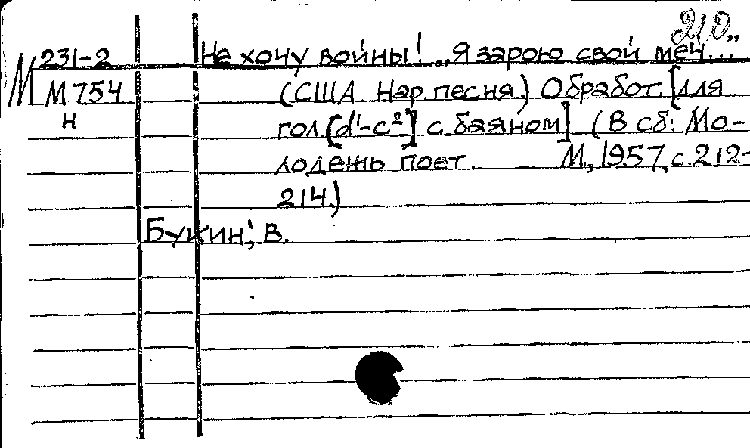 М 231-2 Не хочу войны! „Я зарою свой меч...“
М754 (США. Нар. песня) Обработ. [для
н гол. [d¹-c²] с баяном] (В сб: Мо-
лодежь поет. М, 1957, с. 212-
214.)
Букин, В.